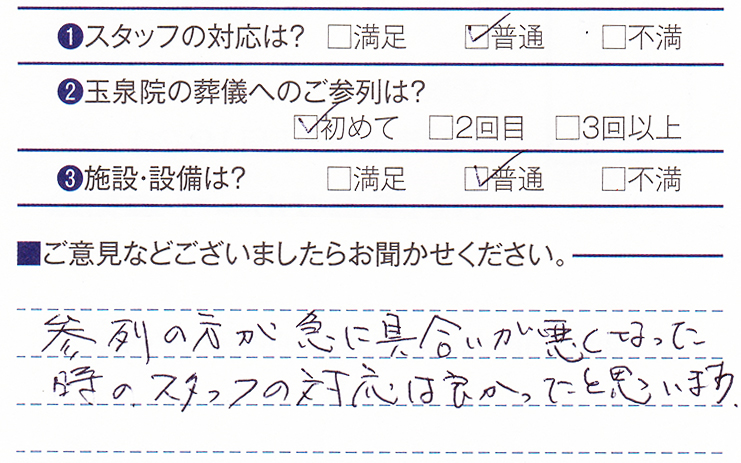 ❶スタッフの対応は? □満足 ☑普通 □不満
❷玉泉院の葬儀へのご参列は?
☑初めて □2回目 □3回以上
❸施設・設備は? □満足 ☑普通 □不満
■ご意見などございましたらお聞かせください。
参列の方が急に具合いが悪くなった
時の、スタッフの対応は良かったと思います。